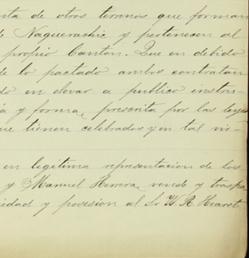 ta de otros terrenos que forman
de Naguerachic y pertenecen al
propio Canton. Que en debido
de lo pactado ambos contratan
do en elevar a publico instru-
a y forma, prescrita por las leyes
que tienen celebrados y en tal vir-
en legitima representacion de los
y Manuel Herrera, vende y traspa
cidad y posesion al Sr W. R. Hearst